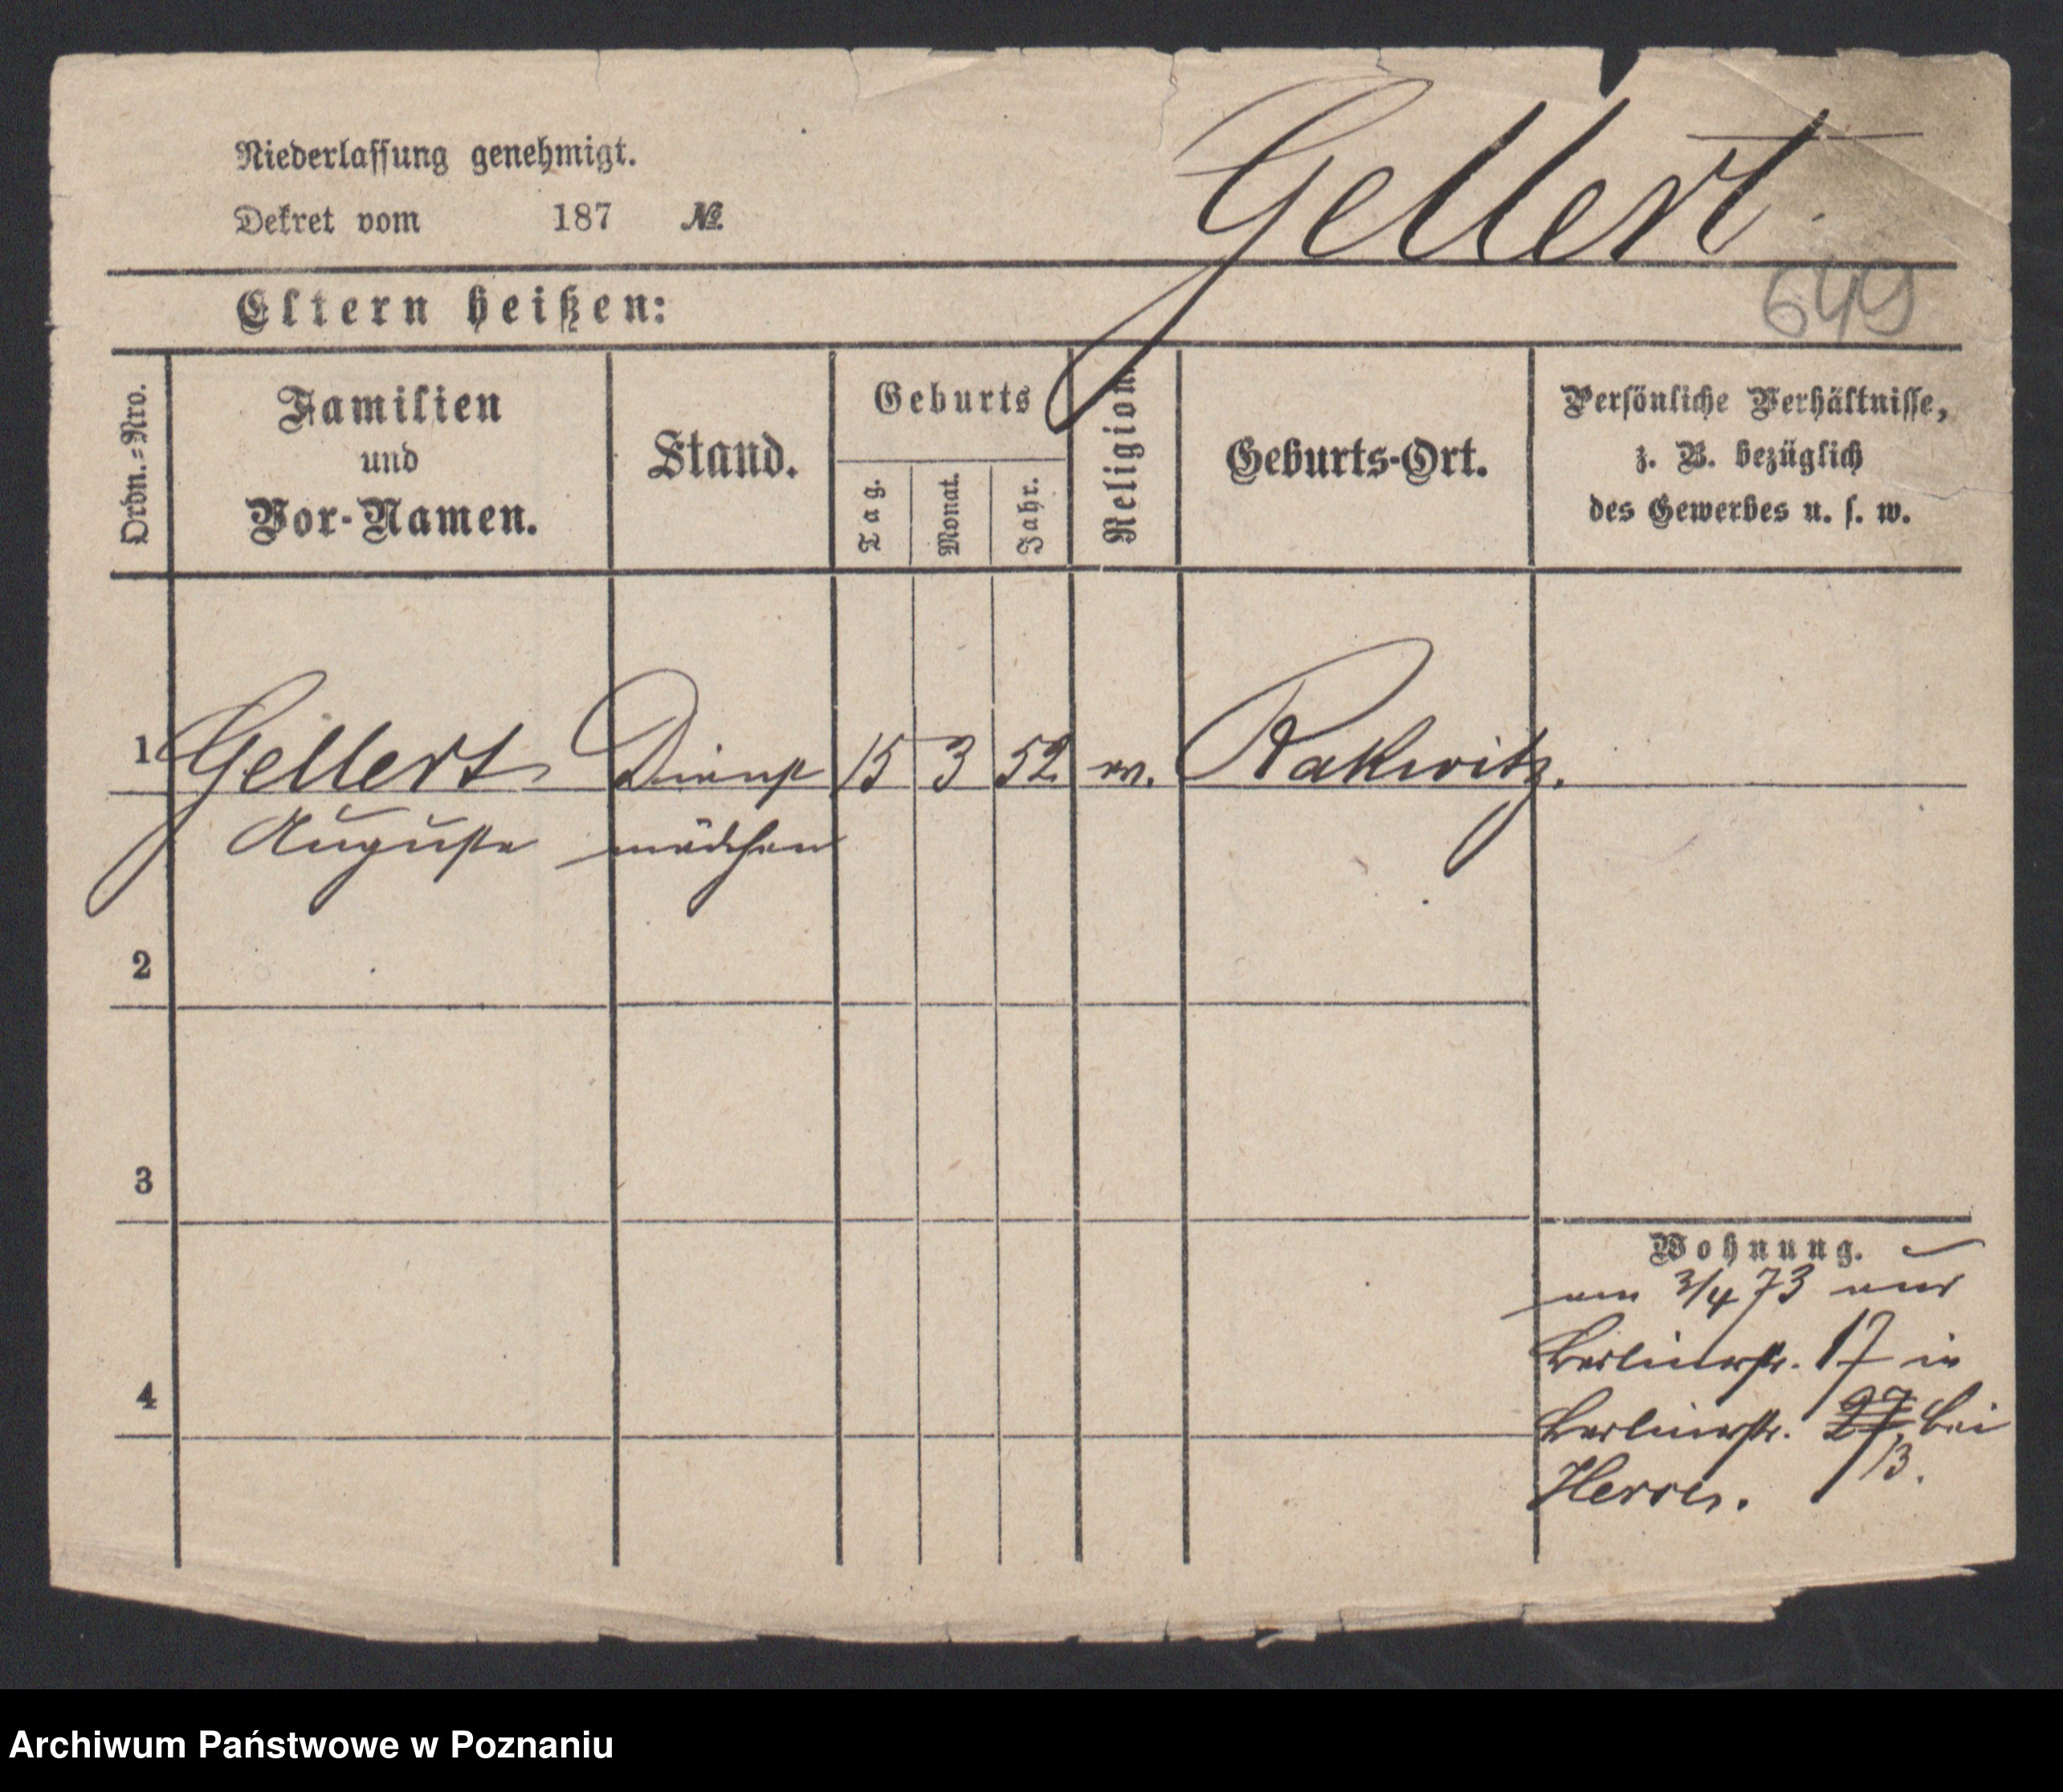 Niederlassung genehmigt.
Dekret vom 187 №
Gellert.
649
Eltern heißen:
Ordn.=Nro.
Familien
und
Vor-Namen.
Stand.
Geburts
Tag.
Monat.
Jahr.
Religion.
Geburts-Ort.
Persönliche Verhältnisse,
z. B. bezüglich
des Gewerbes u. s. w.
1 Gellert Dienst 15 3 52 ev. Rakwitz.
Auguste mädchen
2
3
4
Wohnung.
am 3/4 73 aus
Berlinerstr. 17 in
Berlinerstr. 27 bei
13.
Archiwum Państwowe w Poznaniu